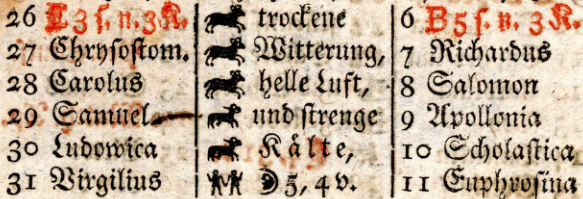 26 D 3 s. n. 3 K. trockene 6 B 5 s. n. 3 K.
27 Chrysostom. Witterung, 7 Richardus
28 Carolus helle Luft, 8 Salomon
29 Samuel und strenge 9 Apollonia
30 Ludowica Kälte, 10 Scholastica
31 Virgilius ☽ 5, 4 v. 11 Euphrosina